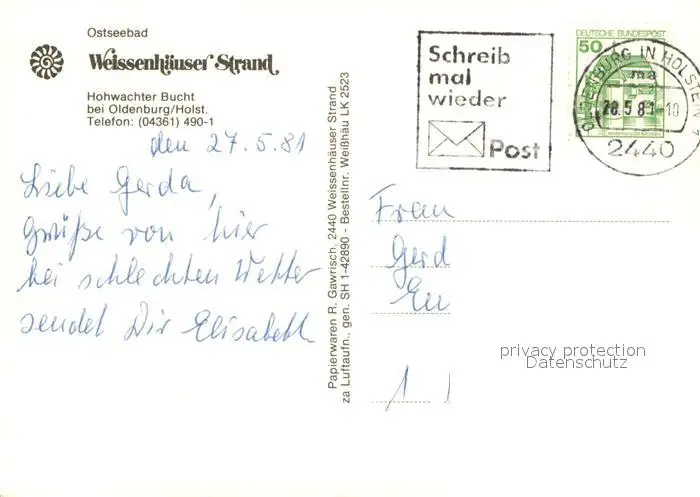 Ostseebad
Weissenhäuser Strand
Hohwachter Bucht
bei Oldenburg/Holst.
Telefon: (04361) 490-1
den 27.5.81
Liebe Gerda,
Grüße von hier
bei schlechten Wetter
sendet Dir Elisabeth
Papierwaren R. Gawrisch, 2440 Weissenhäuser Strand
za Luftaufn., gen. SH 1-42890 - Bestellnr. Weißhäu LK 2523
Schreib
mal
wieder
Post
DEUTSCHE BUNDESPOST
50
OLDENBURG IN HOLSTEIN
ma
28.5.81-10
2440
Frau
Gerd
En
1
privacy protection
Datenschutz